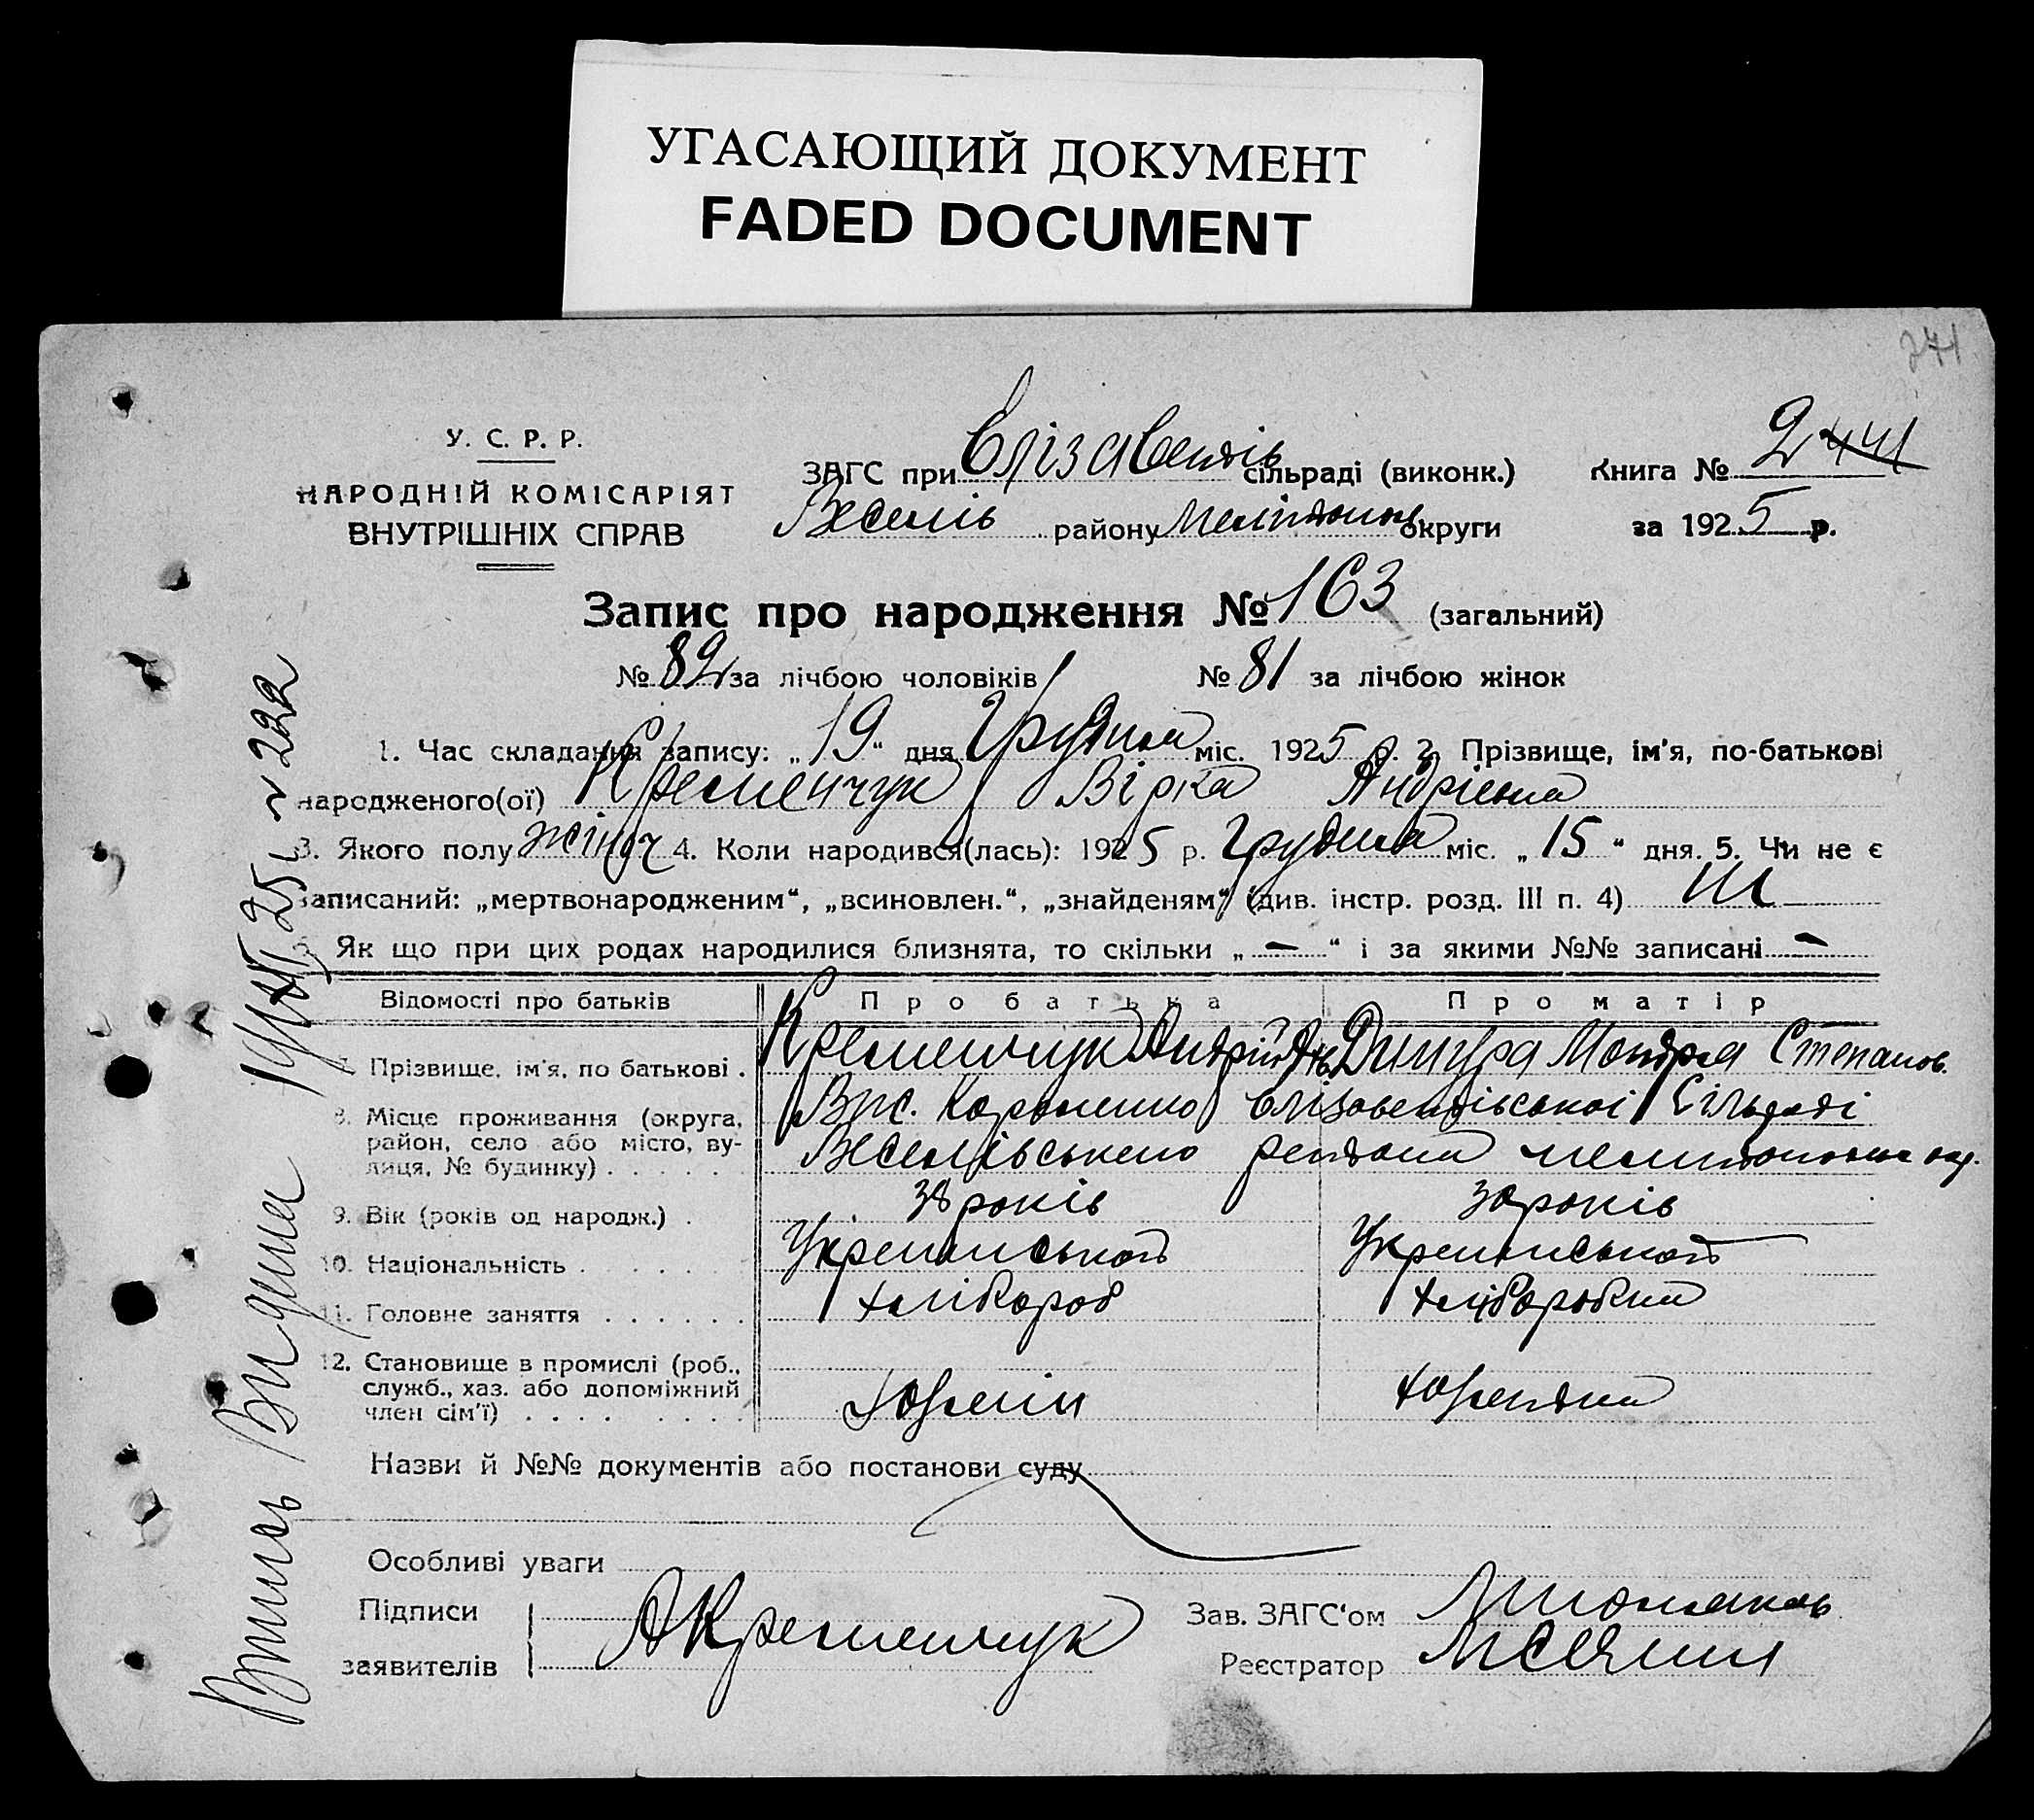 УГАСАЮЩИЙ ДОКУМЕНТ
FADED DOCUMENT
241
У. С. Р. Р.
НАРОДНІЙ КОМІСАРІЯТ
ВНУТРІШНІХ СПРАВ
ЗАГС при Єлізаветів сільраді (виконк.)
Веселів району Мелітоп округи
Книга № 2 441
за 1925 р.
Запис про народження № 163 (загальний)
№ 82 за лічбою чоловіків № 81 за лічбою жінок
1. Час складання запису: „19“ дня Грудня міс. 1925 р. 2. Прізвище, ім'я, по-батькові
народженого(ої) Кременчук Вірка Андріевна
3. Якого полу жіноч 4. Коли народився(лась): 1925 р. Грудня міс. „15“ дня. 5. Чи не є
записаний: „мертвонародженим“, „всиновлен.“, „знайденям“ (див. інстр. розд. III п. 4) ні
6. Як що при цих родах народилися близнята, то скільки „—“ і за якими №№ записані —
Відомості про батьків Про батька Про матір
7. Прізвище, ім'я, по батькові . Кременчук Андрій Степанов.
8. Місце проживання (округа,
район, село або місто, ву-
лиця, № будинку) . . . . .
Єлізаветівської Сільраді
Веселівського района мелитопольск окр.
9. Вік (років од народж.) . 38 років 30 років
10. Національність . . . . . . Української Української
11. Головне заняття . . . . . . хлібороб хліборобка
12. Становище в промислі (роб.,
служб., хаз. або допоміжний
член сім'ї) . . . . . . . . .
Назви й №№ документів або постанови суду
Особливі уваги
Підписи
заявителів
АКременчук
Зав. ЗАГС'ом
Реєстратор
Випись Видана